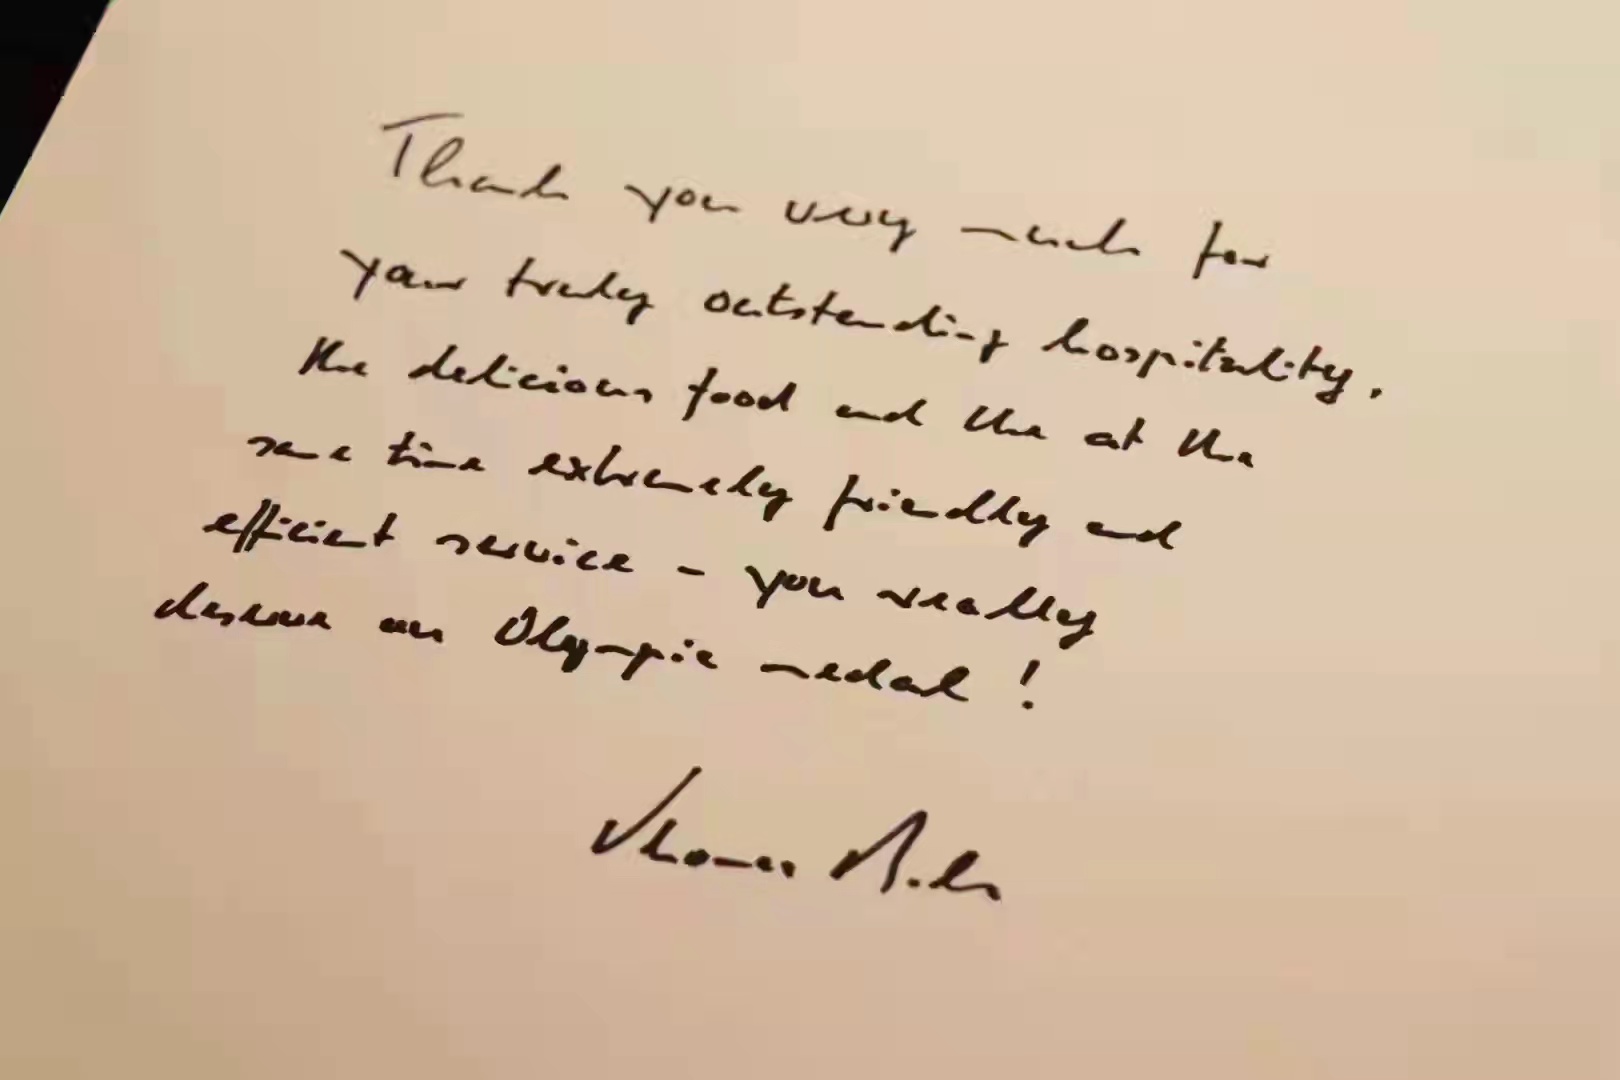 Thank you very much for
your truly outstanding hospitality,
the delicious food and the at the
same time extremely friendly and
efficient service - you really
deserve an Olympic medal !
Thomas